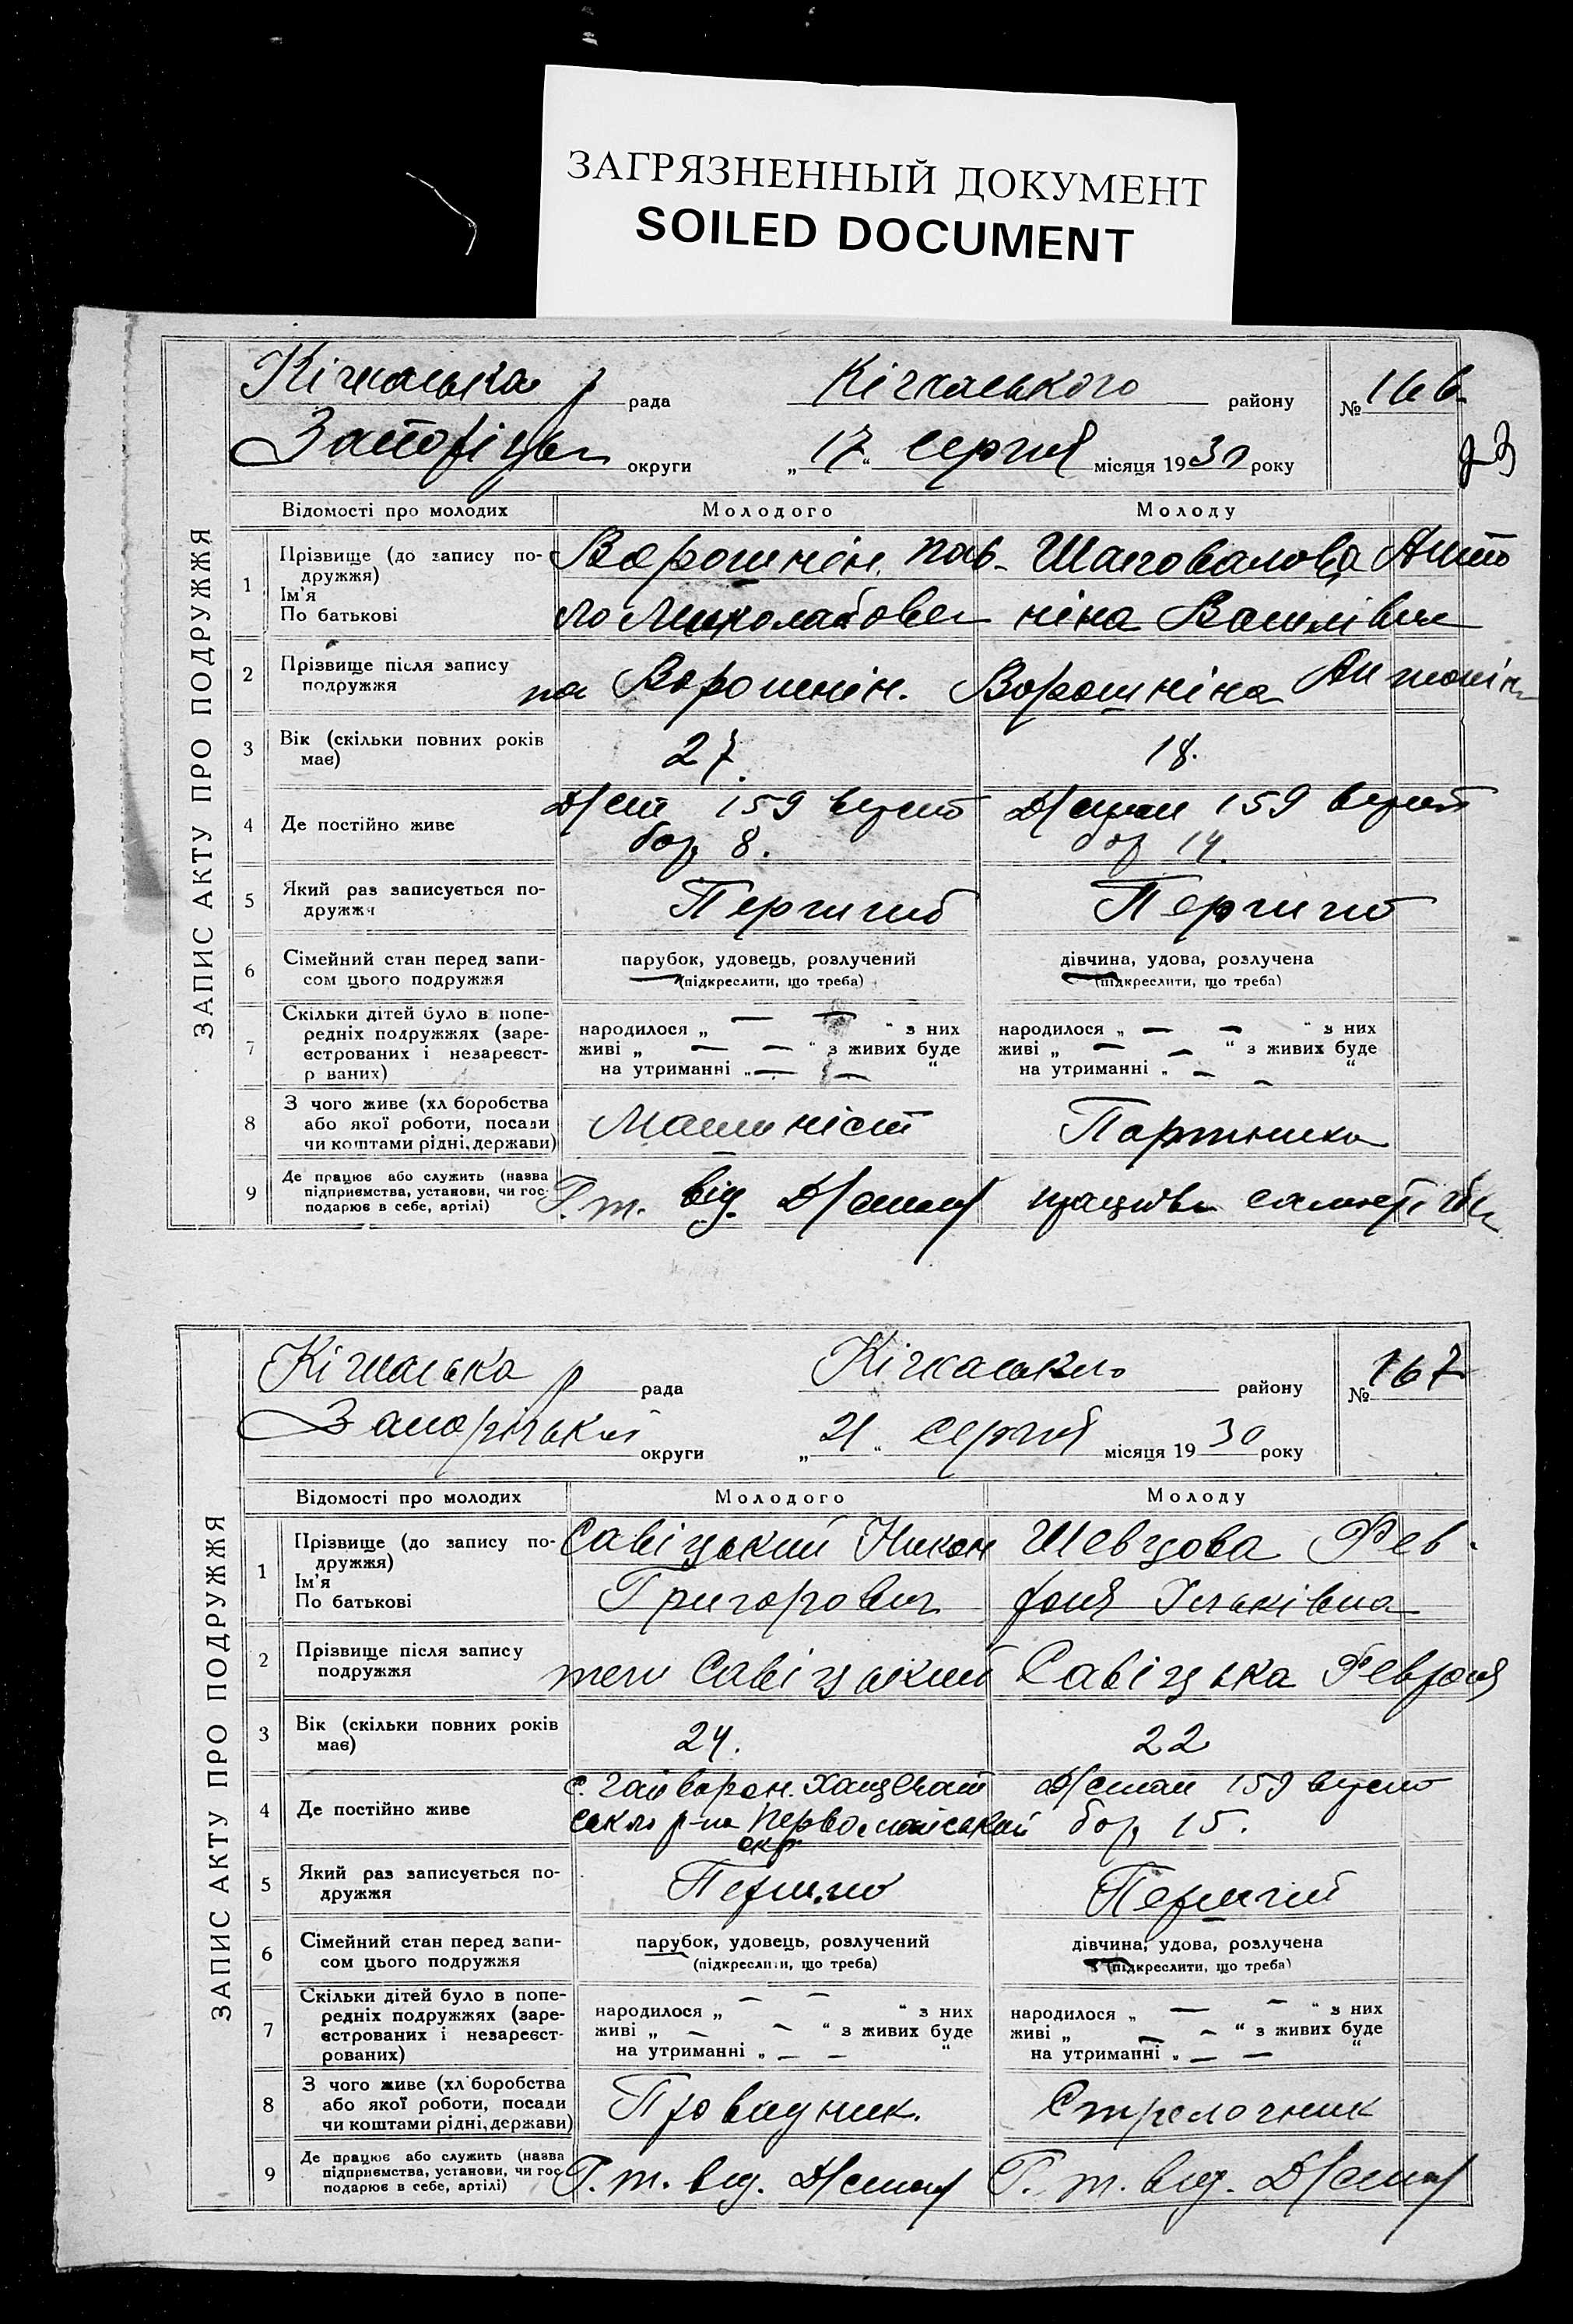 ЗАГРЯЗНЕННЫЙ ДОКУМЕНТ
SOILED DOCUMENT
ЗАПИС АКТУ ПРО ПОДРУЖЖЯ
Кічкаська р рада Кічкаського району № 166
округи „17“ серпня місяця 1930 року
Відомості про молодих Молодого Молоду
1 Прізвище (до запису подружжя) Ім'я По батькові
Ворошнін Пав- Шаповалова Анто
ло Миколайович ніна Василівна
2 Прізвище після запису подружжя на Ворошнін. Ворошніна Антоніна
3 Вік (скільки повних років має) 27. 18.
4 Де постійно живе
159 верст 159 верст
8. 14.
5 Який раз записується подружжя Перший Перший
6 Сімейний стан перед записом цього подружжя
парубок, удовець, розлучений дівчина, удова, розлучена
(підкреслити, що треба) (підкреслити, що треба)
7 Скільки дітей було в попередніх подружжях (зареєстрованих і незареєст-р ваних)
народилося „ — — “ з них народилося „ — — “ з них
живі „ — — “ з живих буде живі „ — — “ з живих буде
на утриманні „ — — “ на утриманні „ — — “
8 З чого живе (хл боробства або якої роботи, посади чи коштами рідні, держави) Машиніст
9 Де працює або служить (назва підприємства, установи, чи гос-подарює в себе, артілі) Г. т. від.
ЗАПИС АКТУ ПРО ПОДРУЖЖЯ
Кічкаська р рада Кічкаського району № 167
Запорізької округи „21“ серпня місяця 1930 року
Відомості про молодих Молодого Молоду
1 Прізвище (до запису подружжя) Ім'я По батькові
Савіцький Никон Шевцова Фев-
Григорович ронія Ільківна
2 Прізвище після запису подружжя Савіцький Савіцька Февронія
3 Вік (скільки повних років має) 24. 22
4 Де постійно живе
с. Гайворон. 159 верст
р-на Первомайської 15.
окр
5 Який раз записується подружжя Перший Перший
6 Сімейний стан перед записом цього подружжя
парубок, удовець, розлучений дівчина, удова, розлучена
(підкреслити, що треба) (підкреслити, що треба)
7 Скільки дітей було в попередніх подружжях (зареєстрованих і незареєстрованих)
народилося „ — — “ з них народилося „ — — “ з них
живі „ — — “ з живих буде живі „ — — “ з живих буде
на утриманні „ — — “ на утриманні „ — — “
8 З чого живе (хл боробства або якої роботи, посади чи коштами рідні, держави) Провидник. Стрелочник
9 Де працює або служить (назва підприємства, установи, чи гос-подарює в себе, артілі) Г. т. від. Г. т. від.